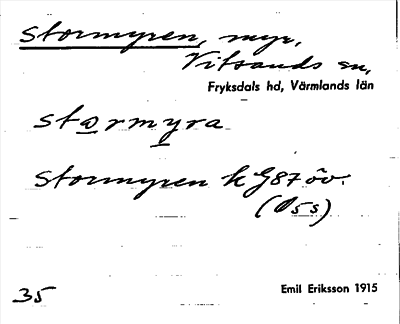 Stormyren, myr,
Vitsands sn,
Fryksdals hd, Värmlands län
størmyra
Stormyren k G87 öv.
(Ø5s)
35
Emil Eriksson 1915